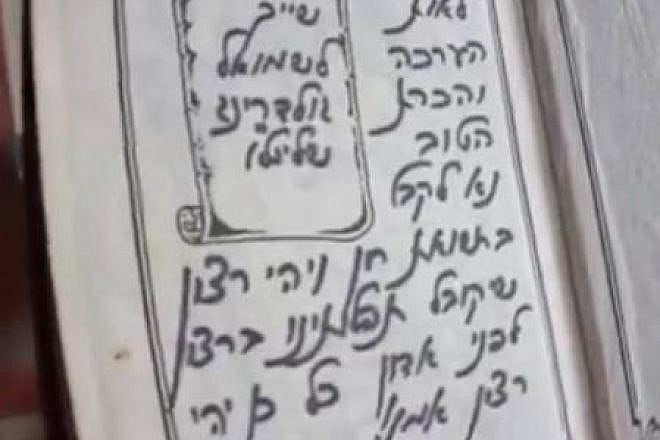 שייך
לשמואל
גולדרינג
שליט"א
לאות
הערכה
והכרת
הטוב
נא לקבל
בתשואת חן ויהי רצון
שיקובל תפלתינו ברצון
לפני אדון כל כן יהי
רצון אמן